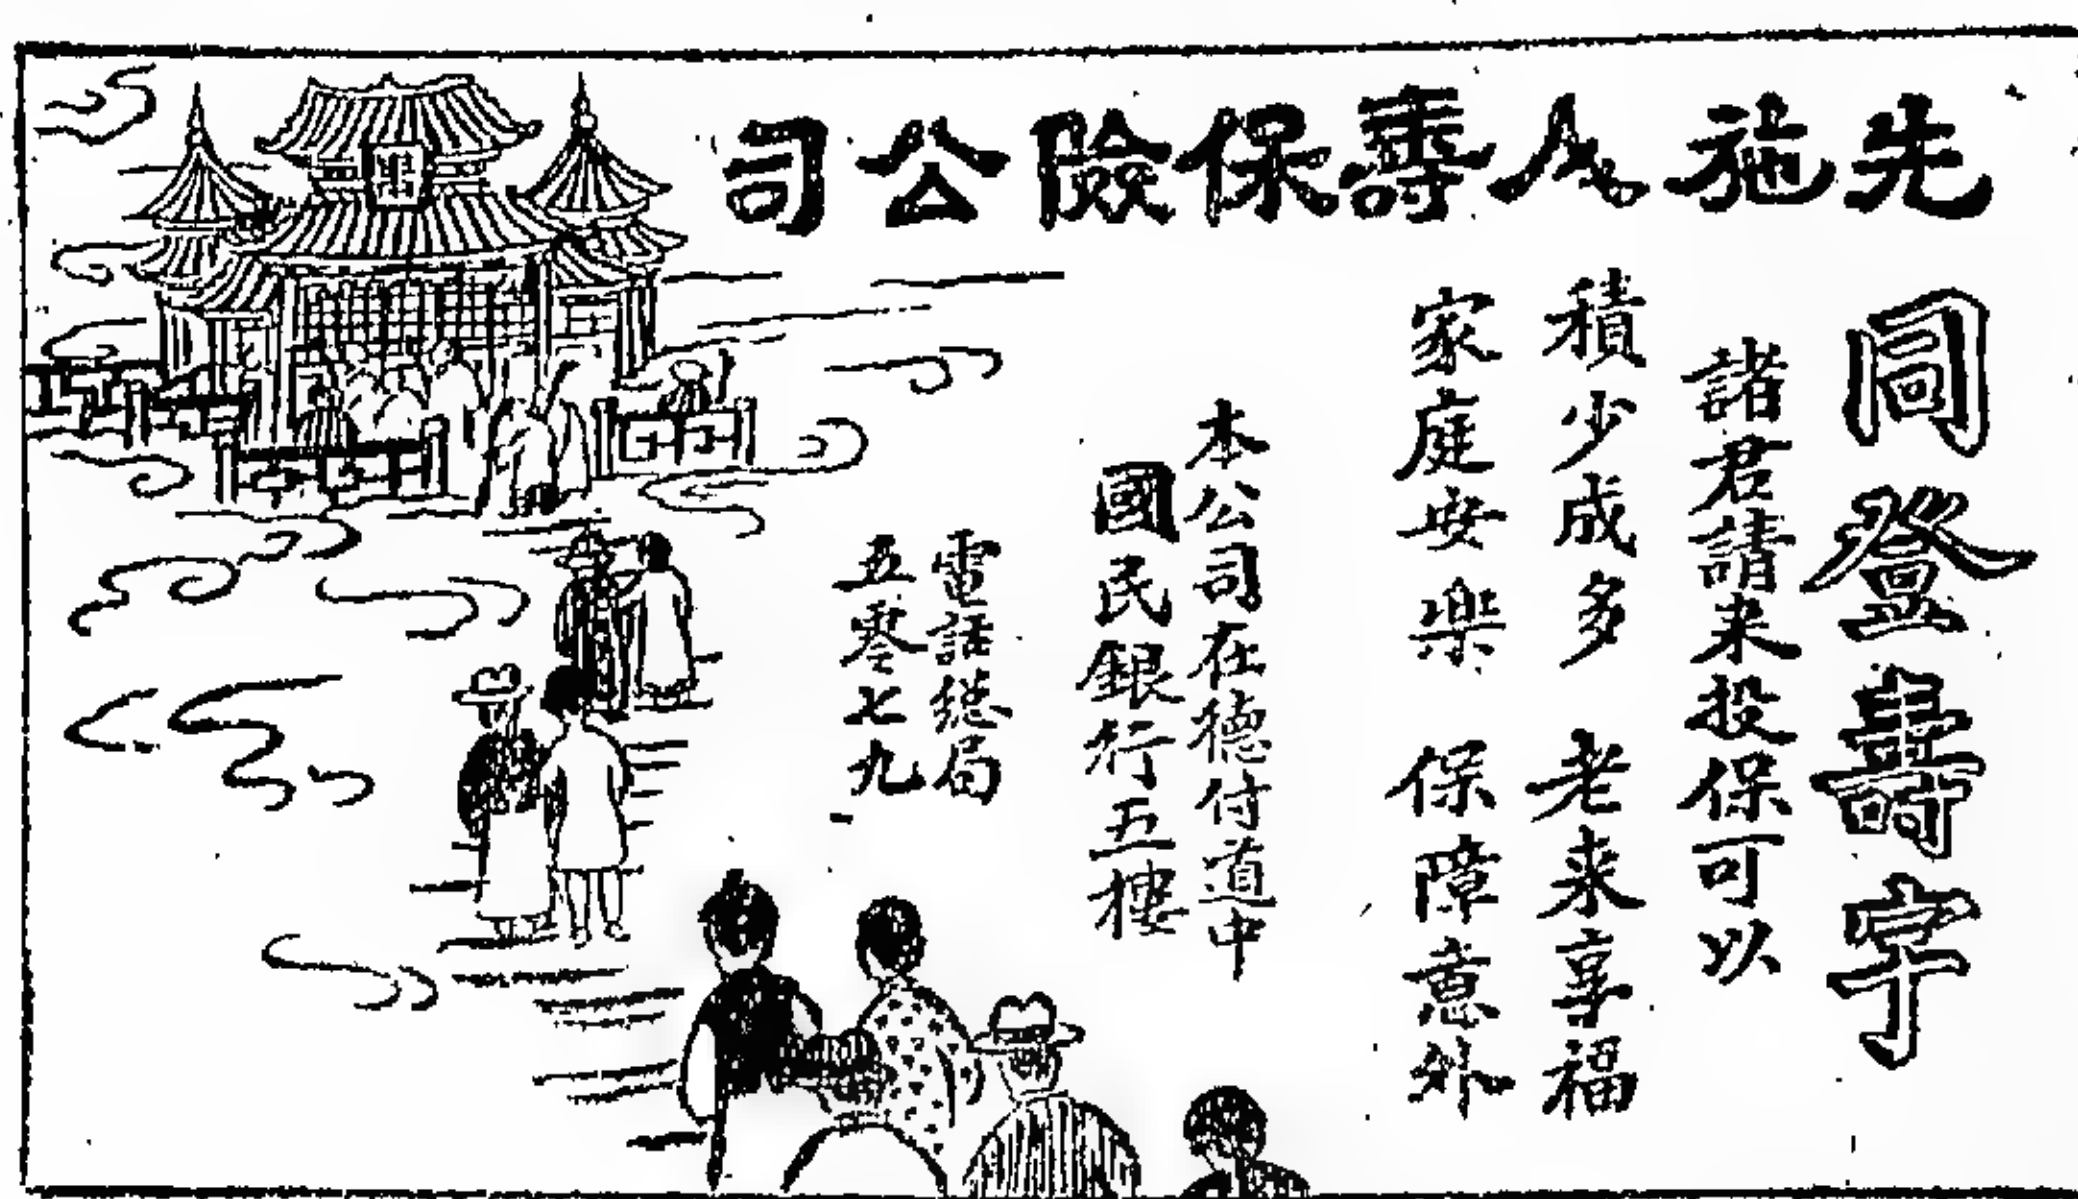 先施人壽保險公司
同登壽字
諸君請來投保可以
積少成多 老來享福
家庭安樂 保障意外
本公司在德付道中
國民銀行五樓
電話總局
五零七九
壽